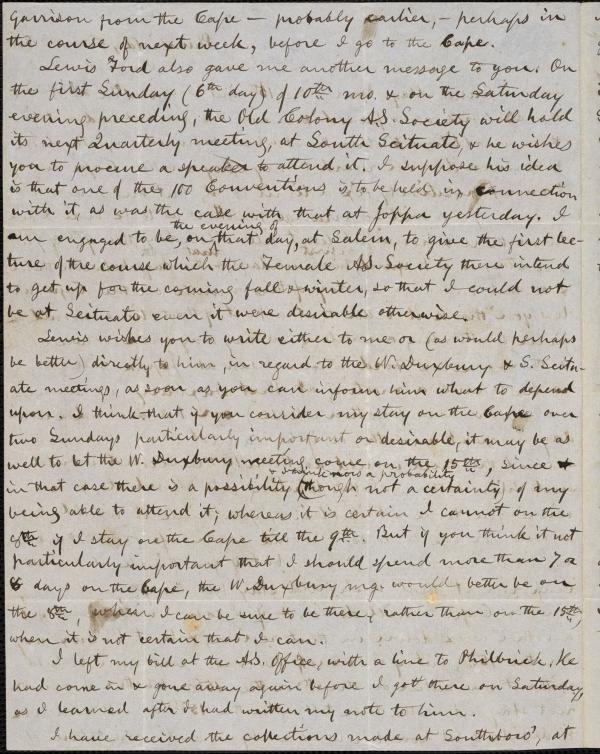 Garrison from the Cape — probably earlier, — perhaps in
the course of next week, before I go to the Cape.
Lewis Ford also gave me another message to you. On
the first Sunday (6th day) of 10th mo. & on the Saturday
evening preceding, the Old Colony A.S. Society will hold
its next Quarterly meeting, at South Scituate, & he wishes
you to procure a speaker to attend it. I suppose his idea
is that one of the 100 Conventions is to be held in connection
with it, as was the case with that at Joppa yesterday. I
am engaged to be, on the evening of that day, at Salem, to give the first lec-
ture of the course which the Female A.S. Society there intend
to get up for the coming fall & winter, so that I could not
be at Scituate even it were desirable otherwise.
Lewis wishes you to write either to me or (as would perhaps
be better) directly to him, in regard to the W. Duxbury & S. Scitu-
ate meetings, as soon as you can inform him what to depend
upon. I think that if you consider my stay on the Cape over
two Sundays particularly important or desirable, it may be as
well to let the W. Duxbury meeting come on the 15th, since
in that case there is a possibility & I think now a probability (though not a certainty) of my
being able to attend it; whereas it is certain I cannot on the
8th if I stay on the Cape till the 9th. But if you think it not
particularly important that I should spend more than 7 or
8 days on the Cape, the W. Duxbury mg. would better be on
the 8th, when I can be sure to be there, rather than on the 15th,
when it is not certain that I can.
I left my bill at the A.S. Office, with a line to Philbrick. He
had come in & gone away again before I got there on Saturday,
as I learned after I had written my note to him.
I have received the collections made at Southboro', at